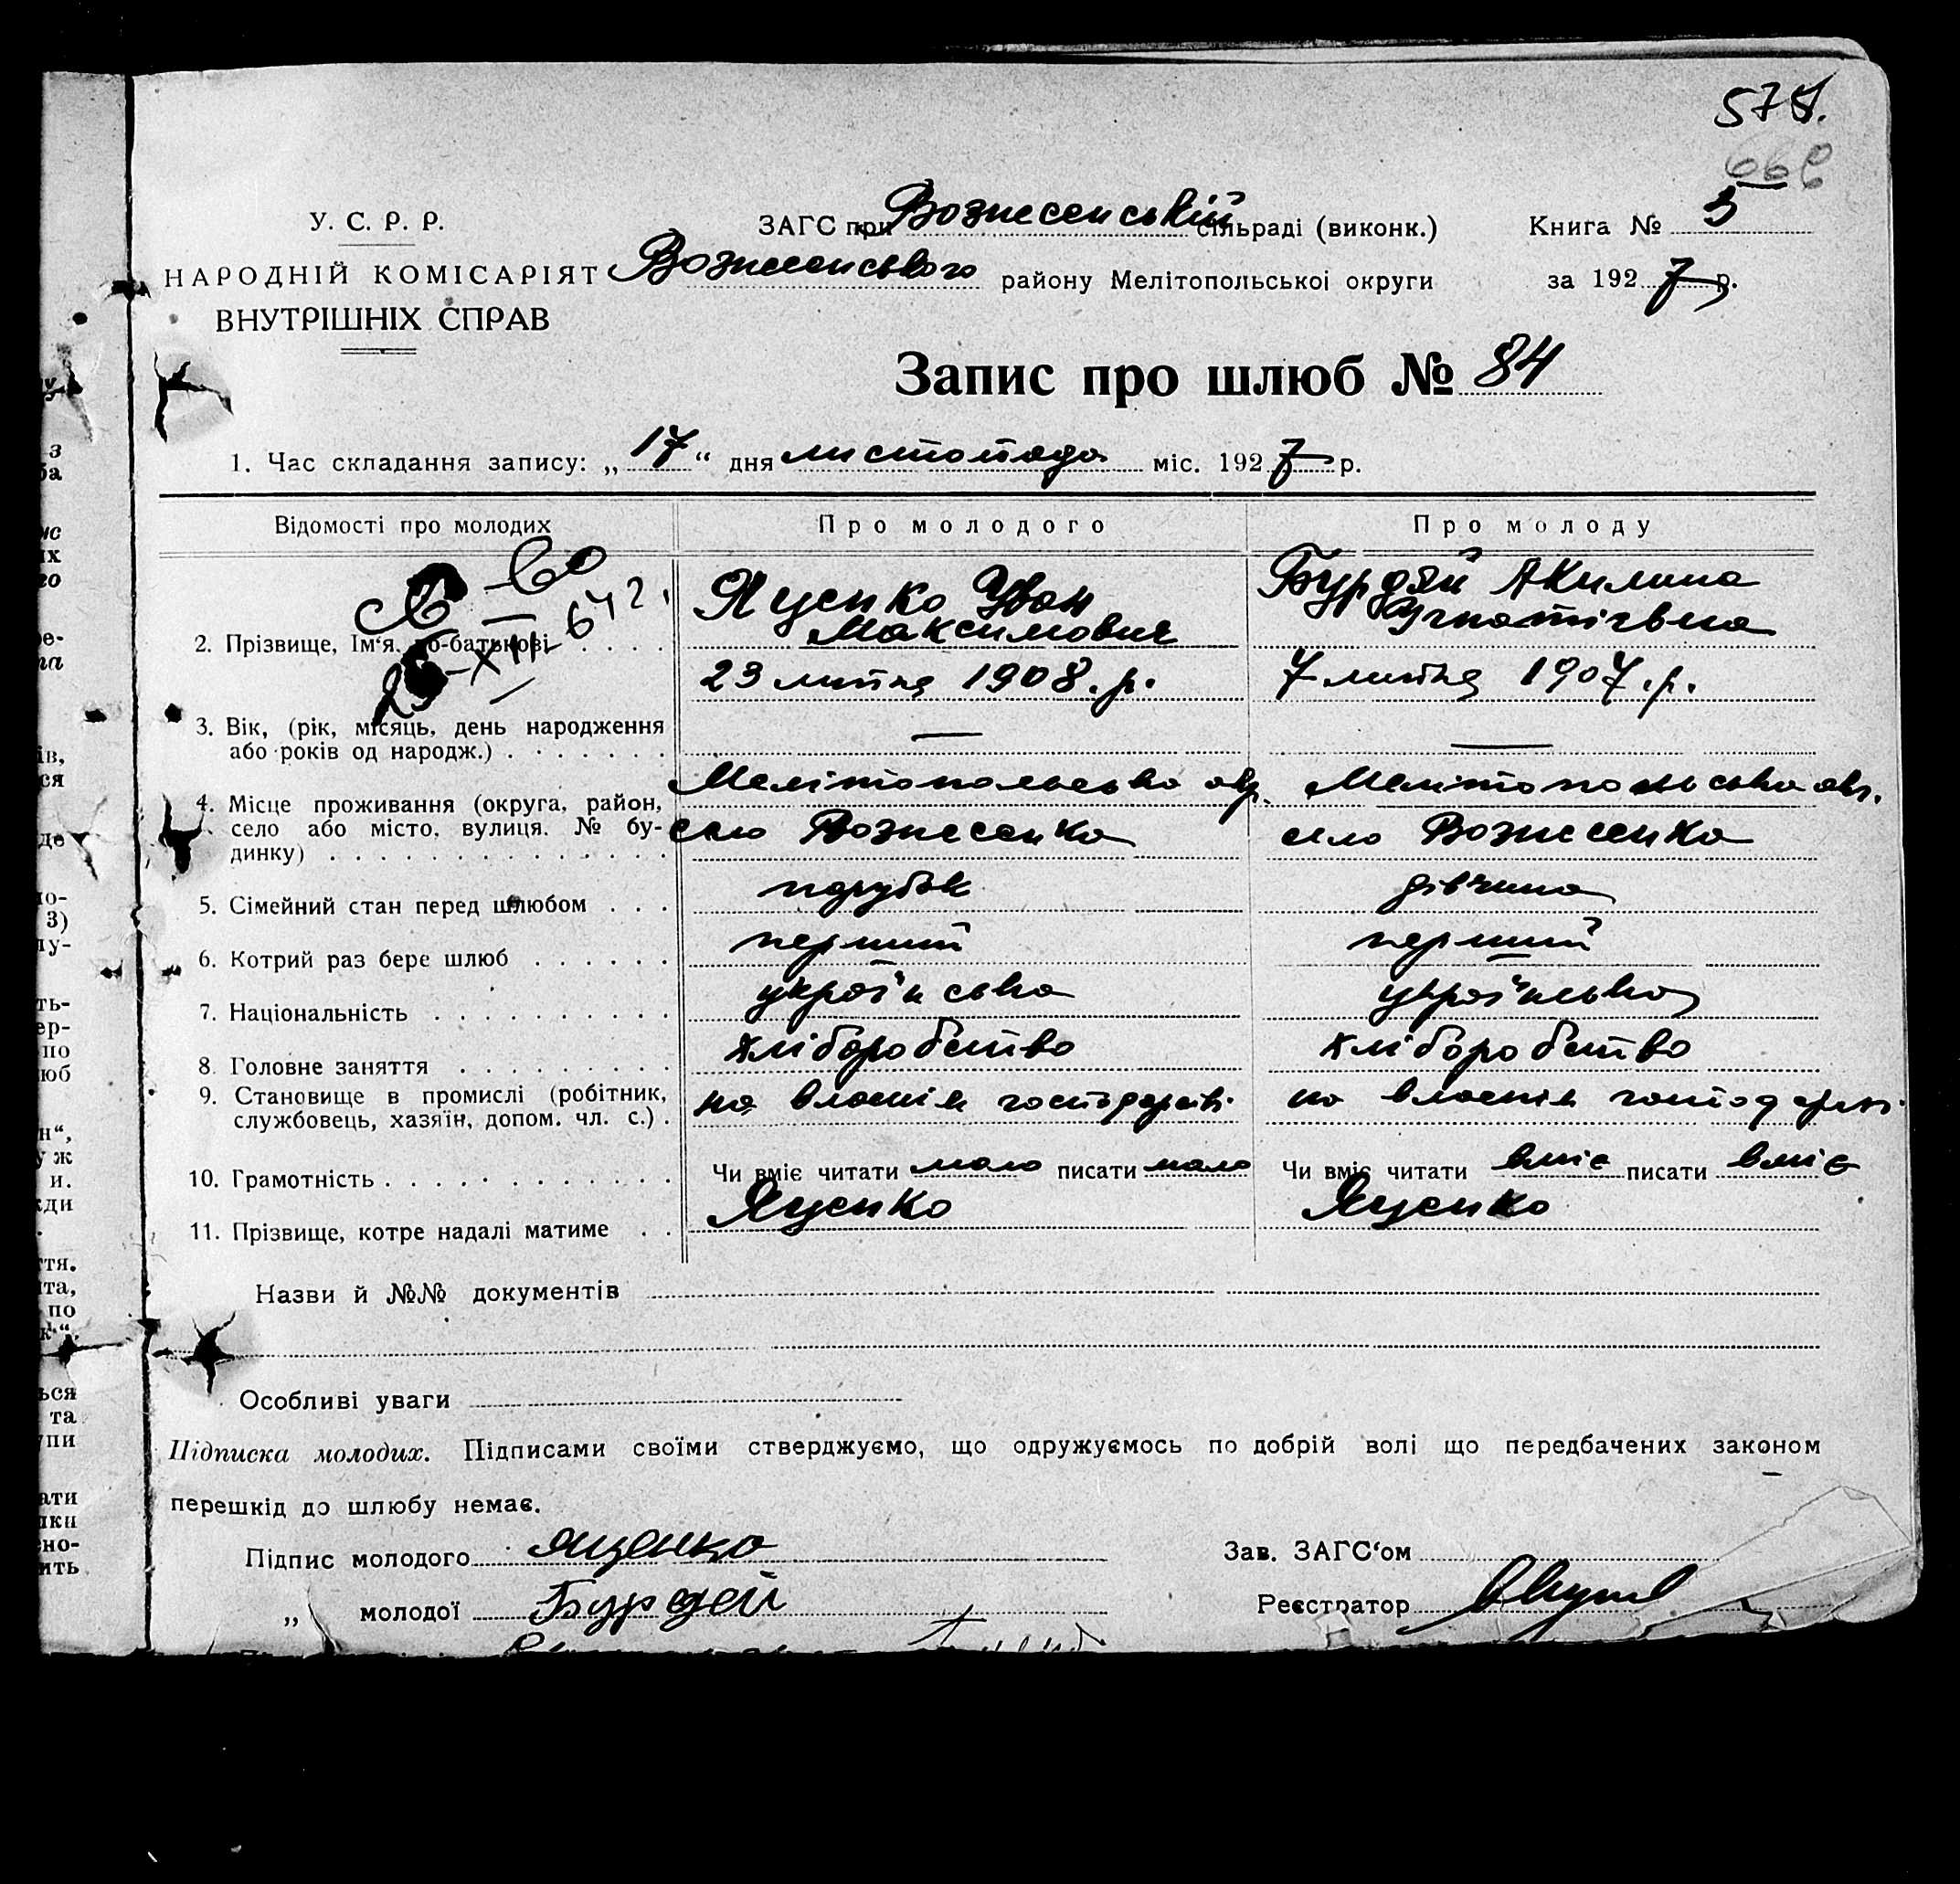 578.
У. С. Р. Р.
НАРОДНІЙ КОМІСАРІЯТ
ВНУТРІШНІХ СПРАВ
ЗАГС при Вознесенській сільраді (виконк.)
Вознесенського району Мелітопольської округи
Книга № 3
за 1927 р.
Запис про шлюб № 84
1. Час складання запису: „17“ дня листопада міс. 1927 р.
Відомості про молодих
Про молодого
Про молоду
2. Прізвище, Ім‘я, по-батькові
Яценко Іван
Максимович
Бурдяй Акилина
Ігнатівна
3. Вік, (рік, місяць, день народження
або років од народж.)
23 липня 1908.р.
7 липня 1907.р.
4. Місце проживання (округа, район,
село або місто, вулиця, № бу-
динку)
Мелітопольська окр.
село Вознесенка
Мелітопольська окр.
село Вознесенка
5. Сімейний стан перед шлюбом
парубок
дівчина
6. Котрий раз бере шлюб
перший
перший
7. Національність
українська
українська
8. Головне заняття
хліборобство
хліборобство
9. Становище в промислі (робітник,
службовець, хазяїн, допом. чл. с.)
на власнім господарстві
на власнім господарстві
10. Грамотність
Чи вміє читати мало писати мало
Чи вміє читати вміє писати вміє
11. Прізвище, котре надалі матиме
Яценко
Яценко
Назви й №№ документів
Особливі уваги
Підписка молодих. Підписами своїми стверджуємо, що одружуємось по добрій волі що передбачених законом
перешкід до шлюбу немає.
Підпис молодого Ященко
„ молодої Бурдей
Зав. ЗАГС‘ом
Реєстратор